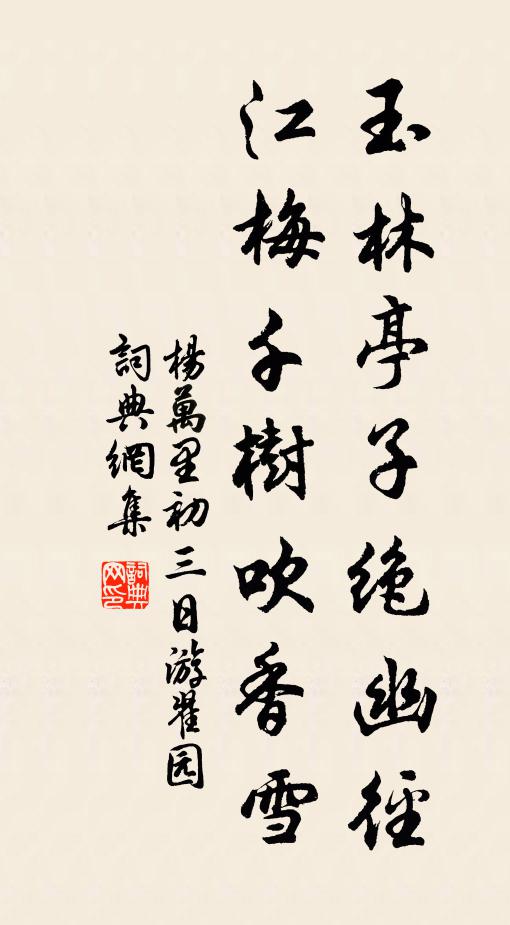 玉林亭子絶幽徑
江梅千樹吹香雪
楊萬里初三日游翟园
詞典網集
詞典
网印